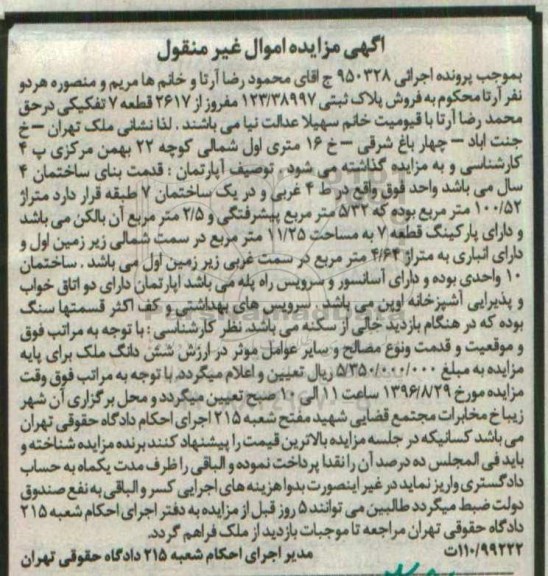 آگهی مزایده اموال غیر منقول
بموجب پرونده اجرائی ۹۵۰۳۲۸ ج آقای محمود رضا آرتا و خانم ها مریم و منصوره هر دو
نفر آرتا محکوم به فروش پلاک ثبتی ۱۲۳/۳۸۹۹۷ مفروز از ۲۶۱۷ قطعه ۷ تفکیکی در حق
محمد رضا آرتا با قیومیت خانم سهیلا عدالت نیا می باشند . لذا نشانی ملک تهران – خ
جنت اباد – چهار باغ شرقی – خ ۱۶ متری اول شمالی کوچه ۲۲ بهمن مرکزی پ ۴
کارشناسی و به مزایده گذاشته می شود . توصیف آپارتمان : قدمت بنای ساختمان ۴
سال می باشد واحد فوق واقع در ط ۴ غربی و در یک ساختمان ۷ طبقه قرار دارد متراژ
۱۰۰/۵۲ متر مربع بوده که ۵/۳۲ متر مربع پیشرفتگی و ۲/۵ متر مربع آن بالکن می باشد
و دارای پارکینگ قطعه ۷ به مساحت ۱۱/۲۵ متر مربع در سمت شمالی زیر زمین اول و
دارای انباری به متراژ ۴/۶۴ متر مربع در سمت غربی زیر زمین اول می باشد . ساختمان
۱۰ واحدی بوده و دارای آسانسور و سرویس راه پله می باشد آپارتمان دارای دو اتاق خواب
و پذیرایی آشپزخانه اوپن می باشد . سرویس های بهداشتی و کف اکثر قسمتها سنگ
بوده که در هنگام بازدید خالی از سکنه می باشد. نظر کارشناسی : با توجه به مراتب فوق
و موقعیت و قدمت ونوع مصالح و سایر عوامل موثر در ارزش شش دانگ ملک برای پایه
مزایده به مبلغ ۵/۳۵۰/۰۰۰/۰۰۰ ریال تعیین و اعلام میگردد. با توجه به مراتب فوق وقت
مزایده مورخ ۱۳۹۶/۸/۲۹ ساعت ۱۱ الی ۱۰ صبح تعیین میگردد و محل برگزاری آن شهر
زیبا خ مخابرات مجتمع قضایی شهید مفتح شعبه ۲۱۵ اجرای احکام دادگاه حقوقی تهران
می باشد کسانیکه در جلسه مزایده بالاترین قیمت را پیشنهاد کنند برنده مزایده شناخته و
باید فی المجلس ده درصد آن را نقدا پرداخت نموده و الباقی را ظرف مدت یکماه به حساب
دادگستری واریز نماید در غیر اینصورت بدوا هزینه های اجرایی کسر و الباقی به نفع صندوق
دولت ضبط میگردد طالبین می توانند ۵ روز قبل از مزایده به دفتر اجرای احکام شعبه ۲۱۵
دادگاه حقوقی تهران مراجعه تا موجبات بازدید از ملک فراهم گردد.
۱۱۰/۹۹۲۲۲ت مدیر اجرای احکام شعبه ۲۱۵ دادگاه حقوقی تهران